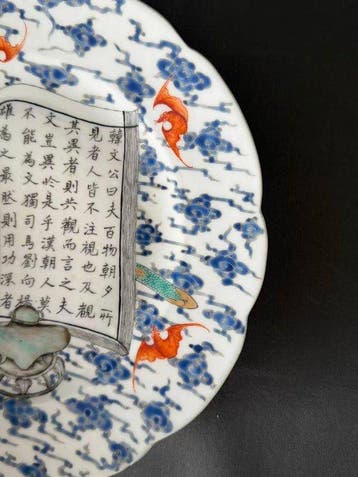 韓文公曰夫百物朝夕所
見者人皆不注視也及觀
其異者則共觀而言之夫
文豈異於是乎漢朝人莫
不能為文獨司馬劉向揚
雄為文最然則用功深者